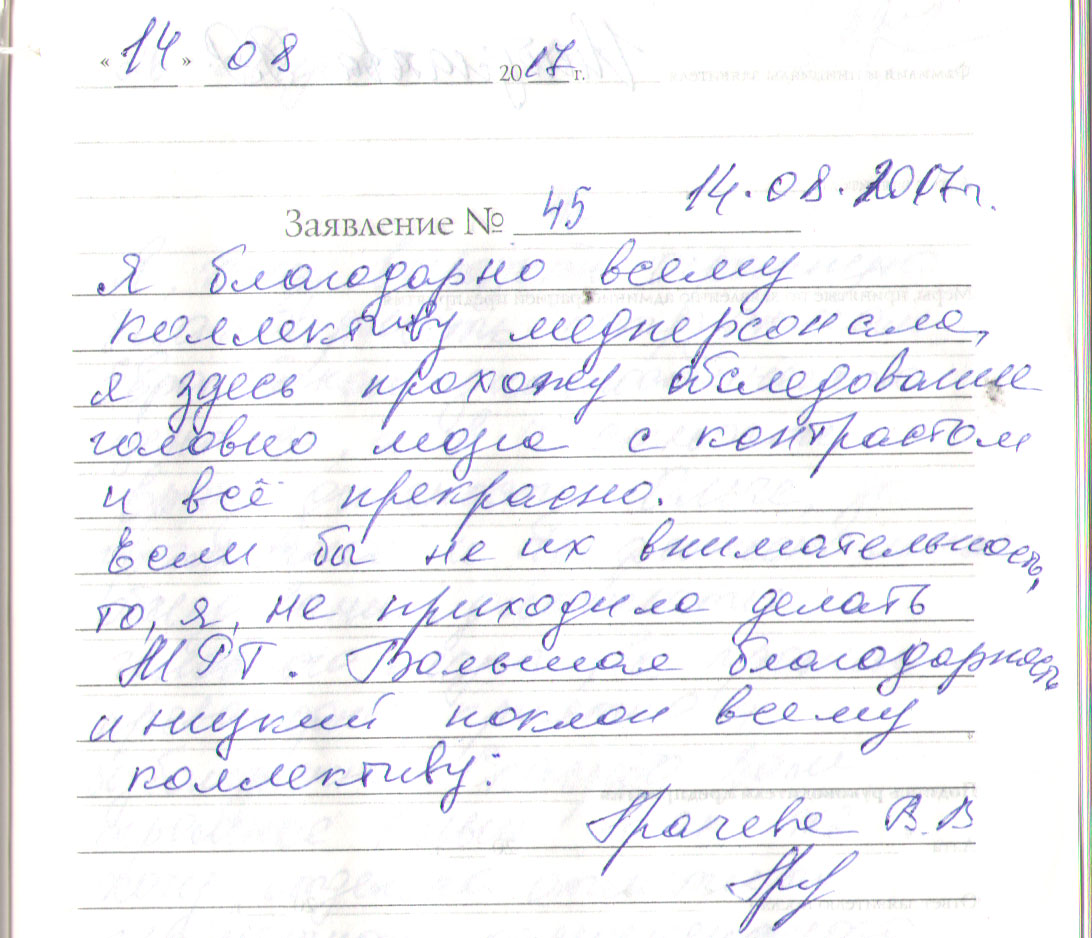 «14» 08 2017 г.
14.08.2017г.
Заявление № 45
Я благодарно всему
коллективу медперсонала,
я здесь прохожу обследование
головно мозга с контрастом
и всё прекрасно.
Если бы не их внимательность,
то, я, не приходила делать
МРТ. Большая благодарность
и ницкий поклон всему
коллективу:
Грачева В.В